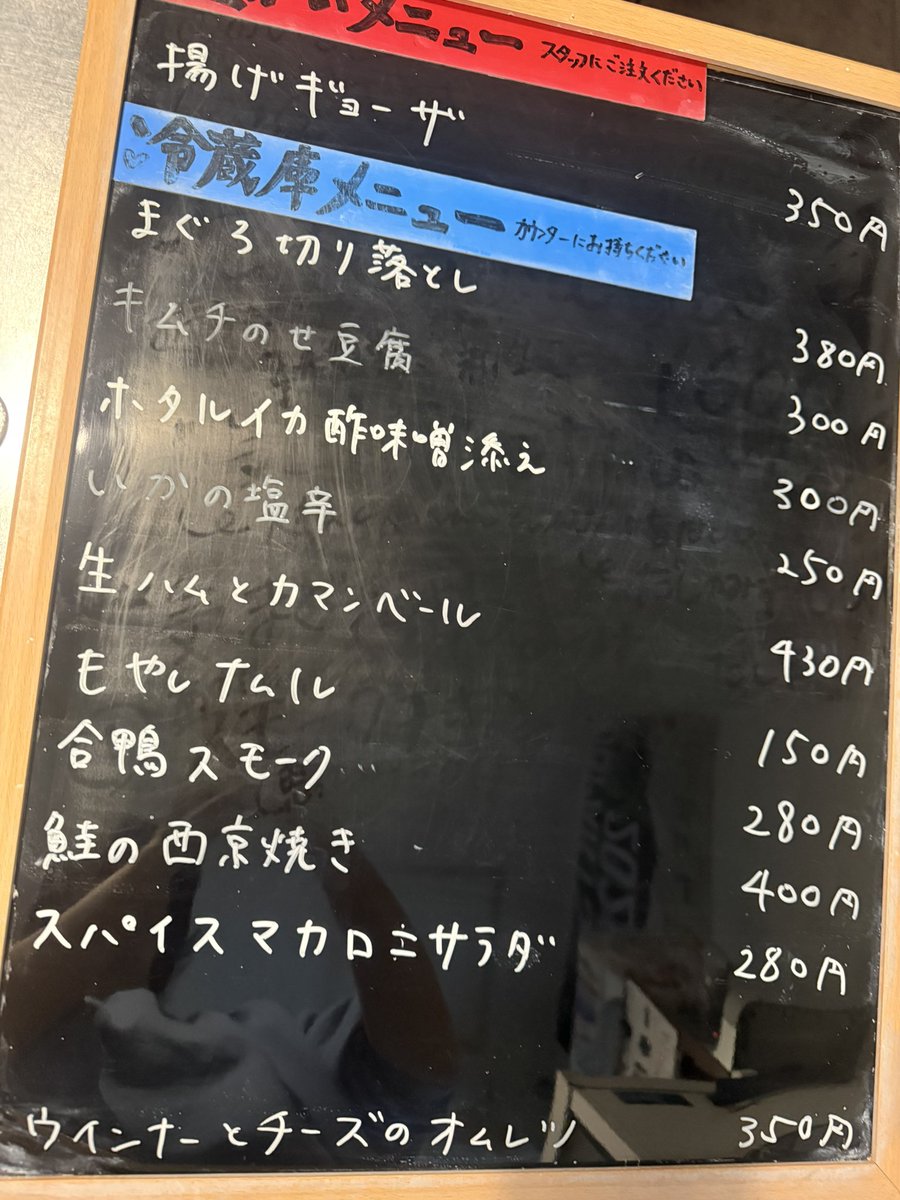 メニュー スタッフにご注文ください
揚げギョーザ 350円
冷蔵庫メニュー カウンターにお持ちください
まぐろ切り落とし 380円
キムチのせ豆腐 300円
ホタルイカ酢味噌添え 300円
いかの塩辛 250円
生ハムとカマンベール 430円
もやしナムル 150円
合鴨スモーク 280円
鮭の西京焼き 400円
スパイスマカロニサラダ 280円
ウインナーとチーズのオムレツ 350円